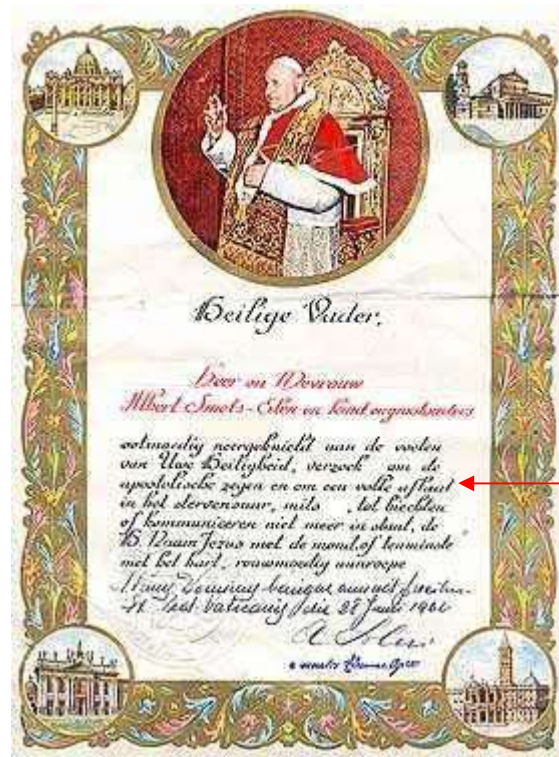 Heilige Vader,
Heer en Mevrouw
Albert Smets - Elen en kind
ootmoedig neergeknield aan de voeten
van Uwe Heiligheid, verzoek om de
apostolische zegen en om een volle aflaat
in het stervensuur, mits , tot biechten
of kommuniceren niet meer in staat, de
H. Naam Jezus met de mond, of tenminste
met het hart, rouwmoedig aanroepe
benigne annuit
die 28